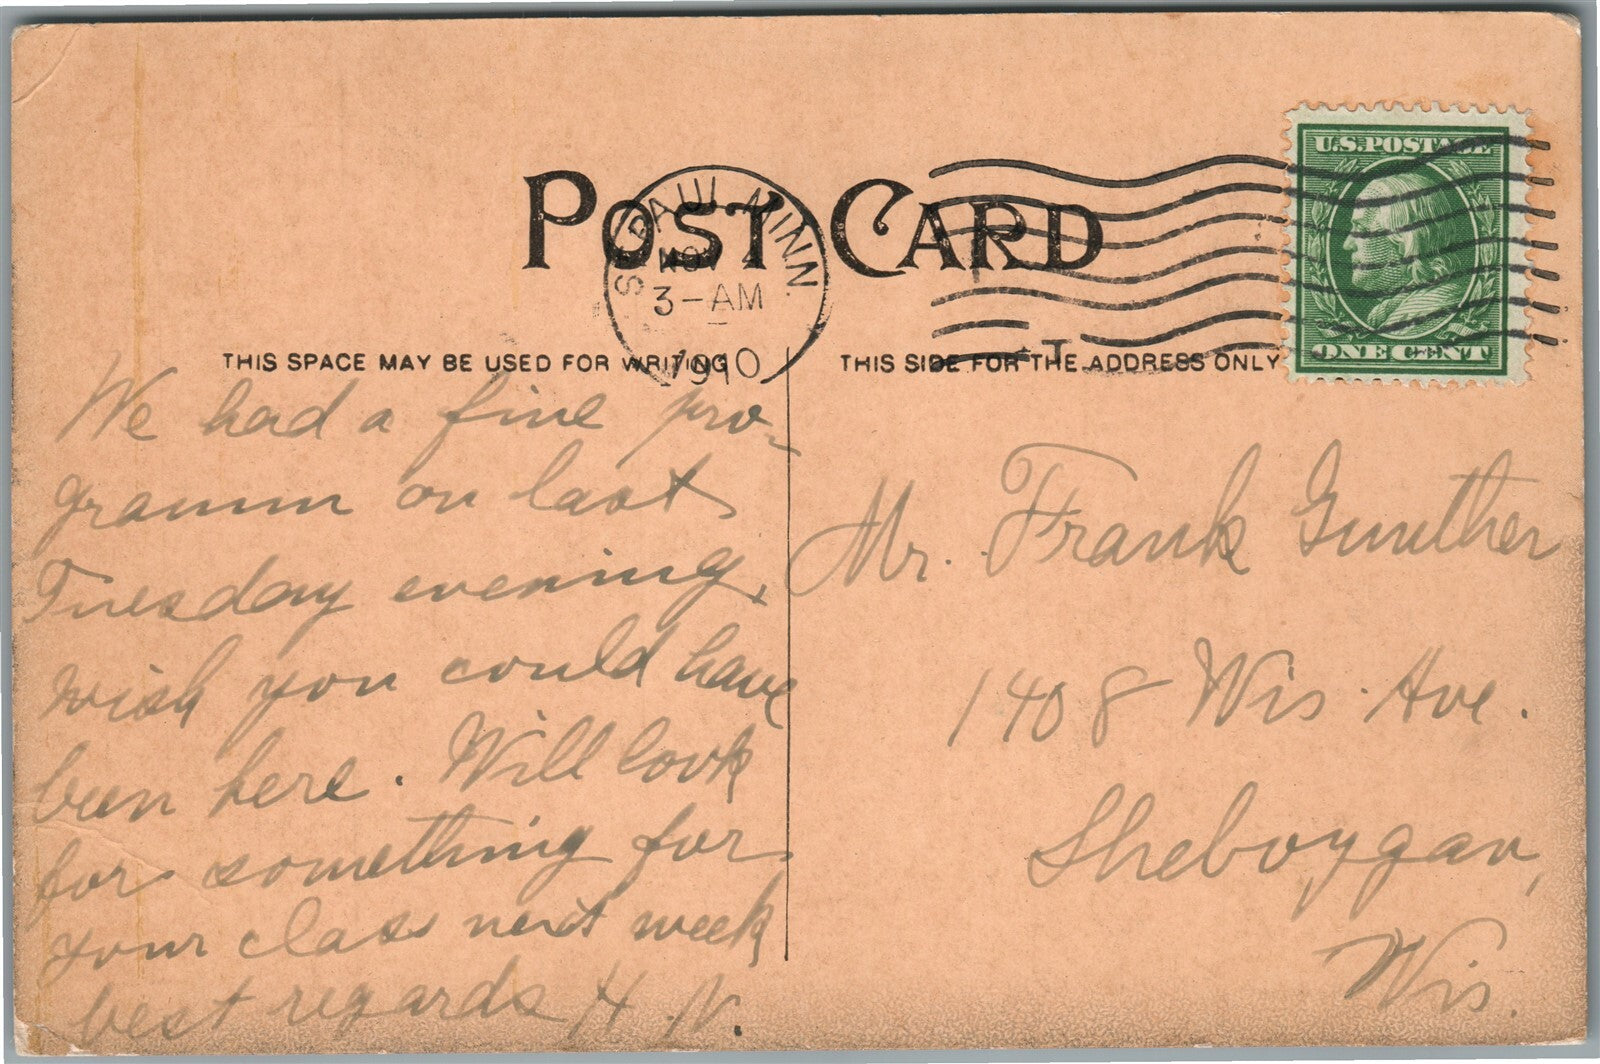 POST CARD
ST. PAUL, MINN.
NOV 4
3-AM
1910
U.S. POSTAGE
ONE CENT
THIS SPACE MAY BE USED FOR WRITING
THIS SIDE FOR THE ADDRESS ONLY
We had a fine pro-
gramm on last
Tuesday evening,
wish you could have
been here. Will look
for something for
your class next week
best regards H. N.
Mr. Frank Gunther
1408 Wis. Ave.
Sheboygan,
Wis.